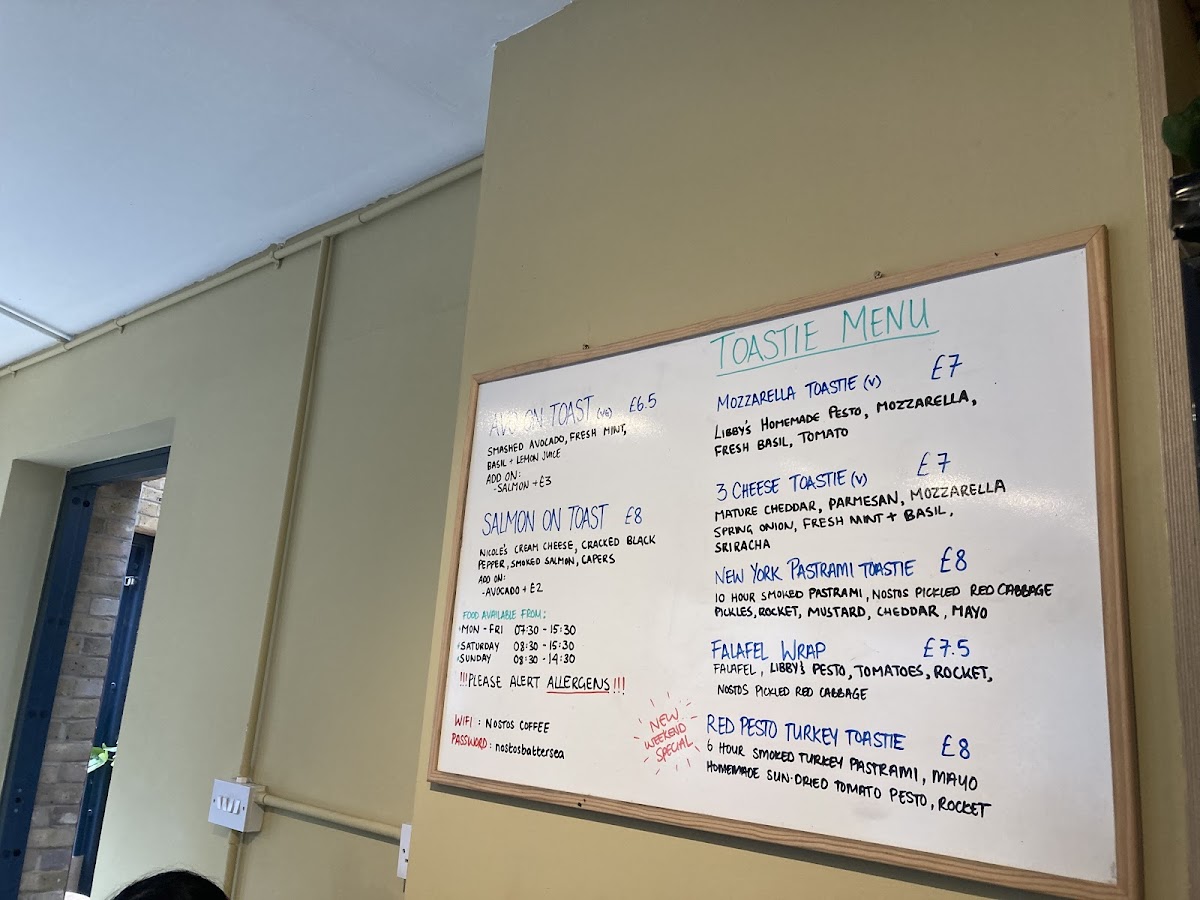 AVO ON TOAST (VG) £6.5
SMASHED AVOCADO, FRESH MINT,
BASIL + LEMON JUICE
ADD ON:
- SALMON + £3
SALMON ON TOAST £8
NICOLE'S CREAM CHEESE, CRACKED BLACK
PEPPER, SMOKED SALMON, CAPERS
ADD ON:
- AVOCADO + £2
FOOD AVAILABLE FROM:
MON - FRI 07:30 - 15:30
SATURDAY 08:30 - 15:30
SUNDAY 08:30 - 14:30
!!!PLEASE ALERT ALLERGENS!!!
WIFI : NOSTOS COFFEE
PASSWORD : nostosbattersea
TOASTIE MENU
MOZZARELLA TOASTIE (V) £7
LIBBY'S HOMEMADE PESTO, MOZZARELLA,
FRESH BASIL, TOMATO
3 CHEESE TOASTIE (V) £7
MATURE CHEDDAR, PARMESAN, MOZZARELLA
SPRING ONION, FRESH MINT + BASIL,
SRIRACHA
NEW YORK PASTRAMI TOASTIE £8
10 HOUR SMOKED PASTRAMI, NOSTOS PICKLED RED CABBAGE
PICKLES, ROCKET, MUSTARD, CHEDDAR, MAYO
FALAFEL WRAP £7.5
FALAFEL, LIBBY'S PESTO, TOMATOES, ROCKET,
NOSTOS PICKLED RED CABBAGE
NEW
WEEKEND
SPECIAL
RED PESTO TURKEY TOASTIE £8
6 HOUR SMOKED TURKEY PASTRAMI, MAYO
HOMEMADE SUN-DRIED TOMATO PESTO, ROCKET